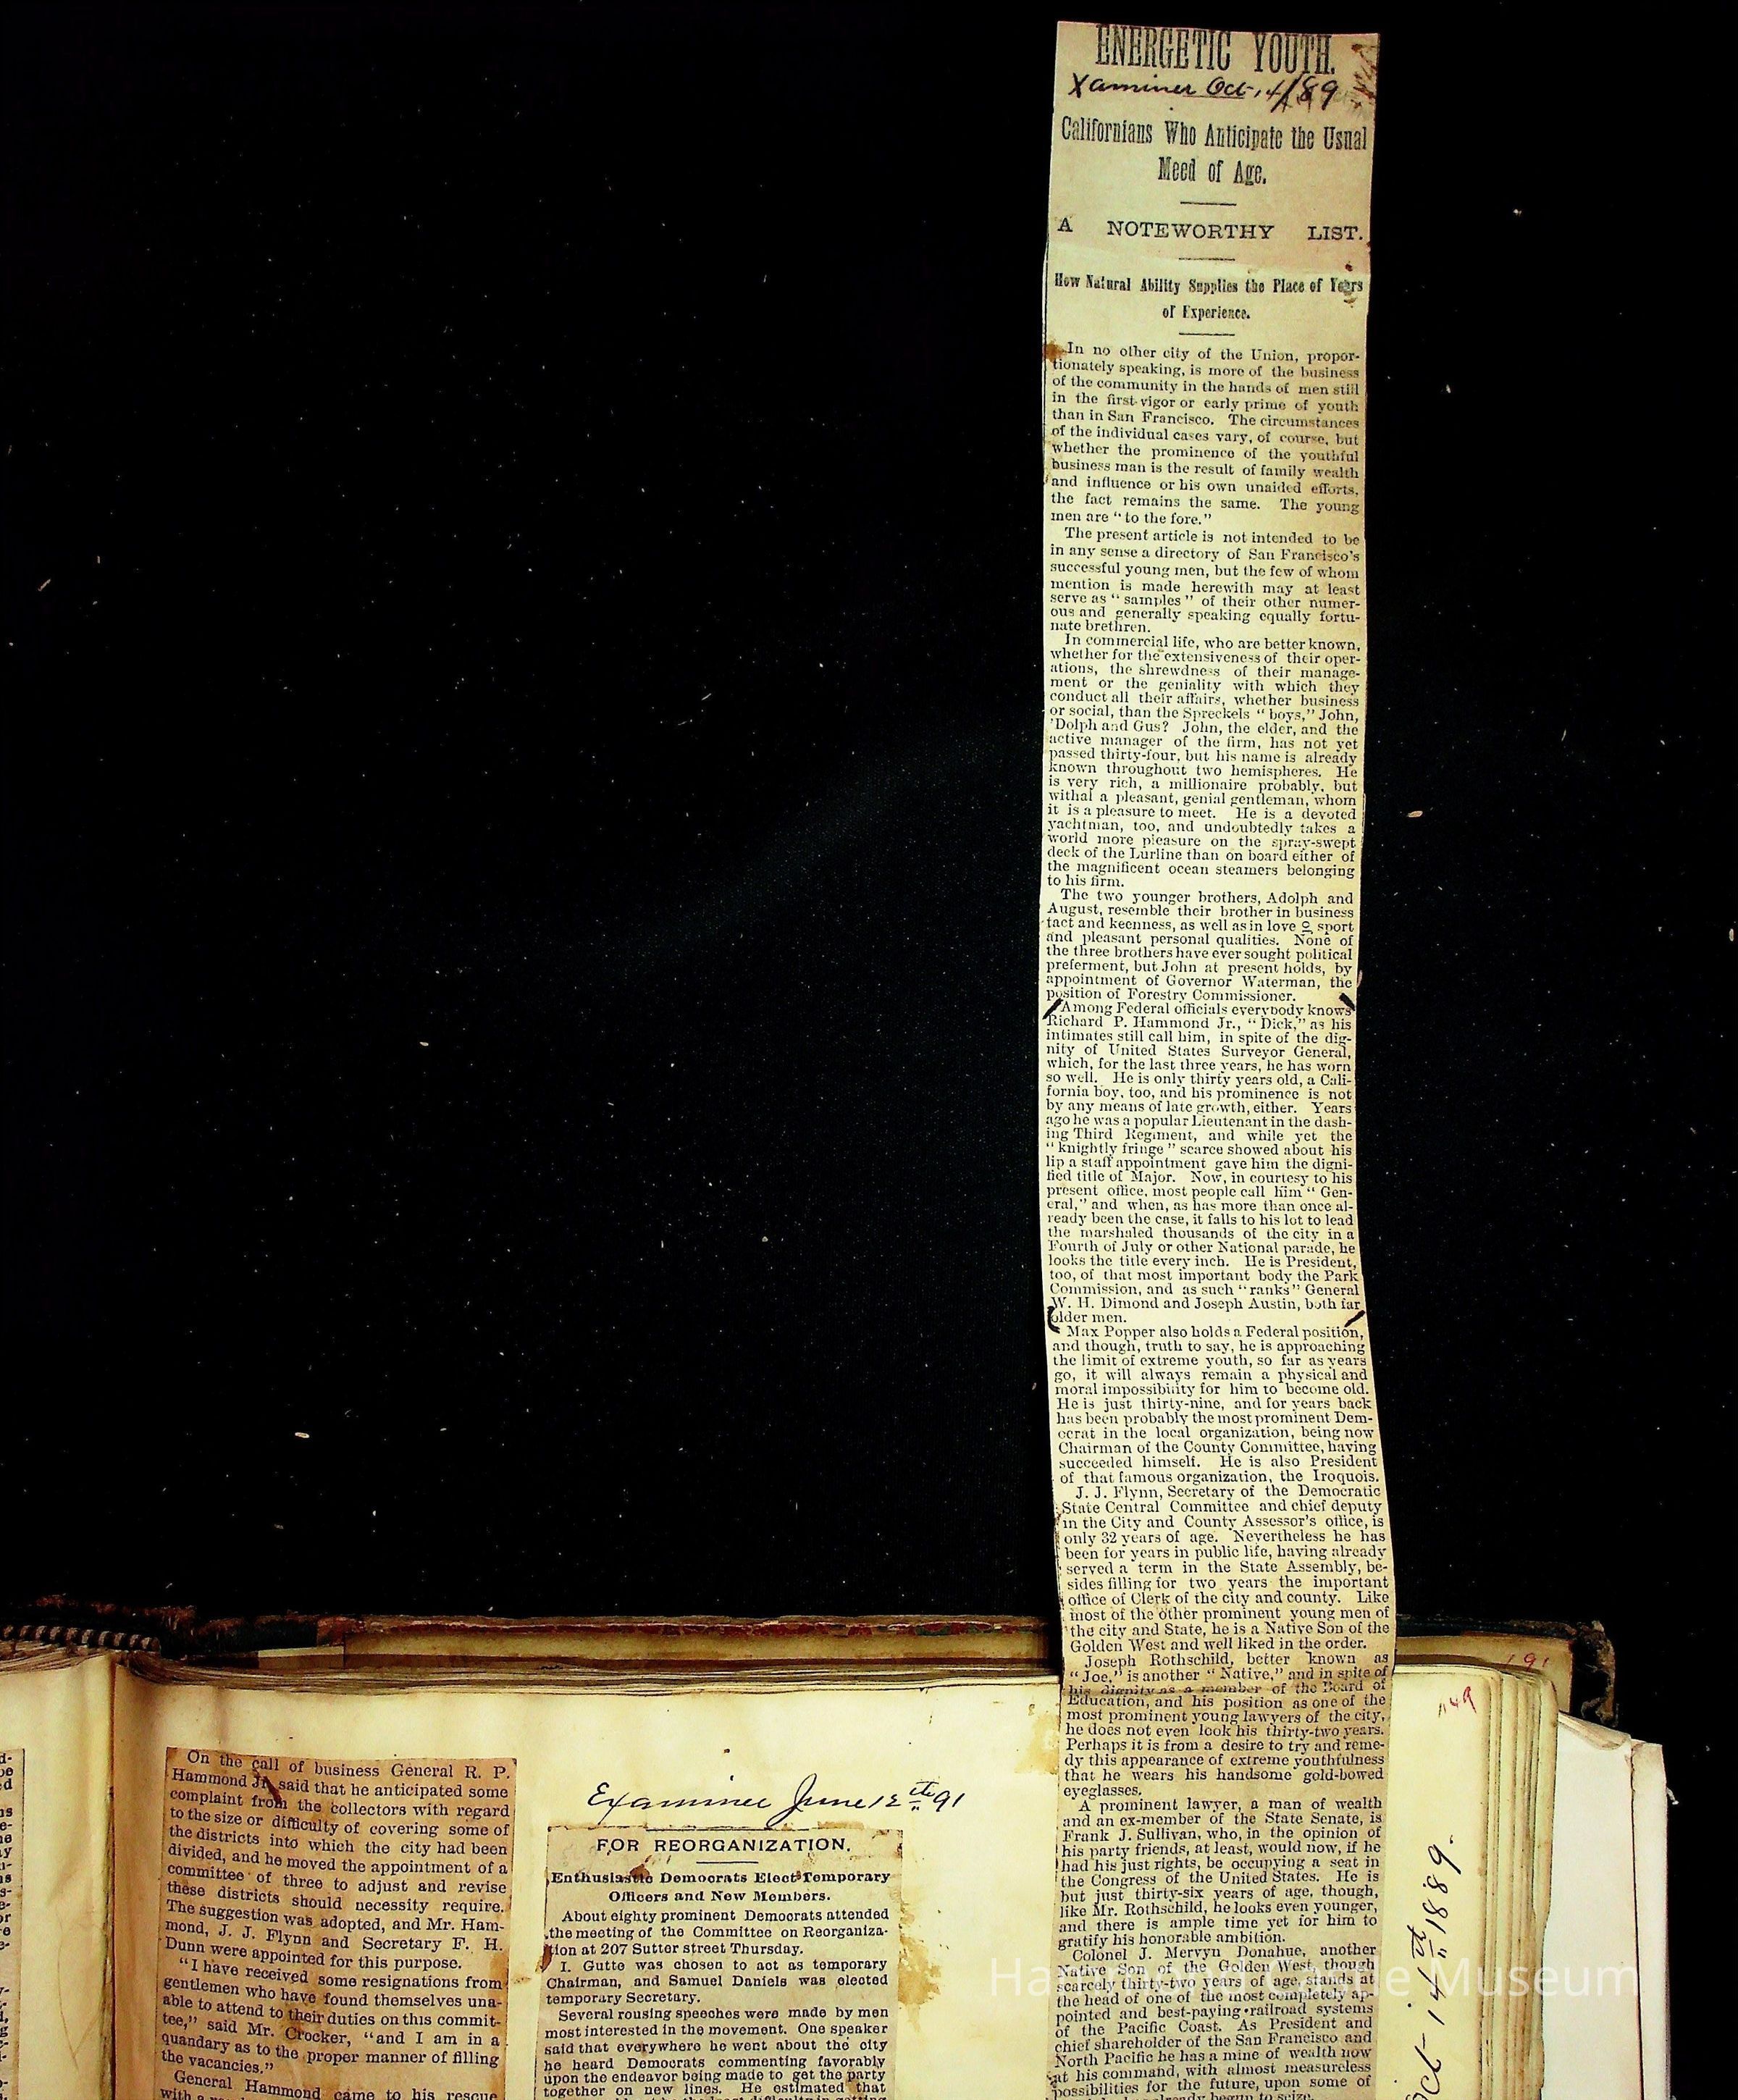 ENERGETIC YOUTH.
Xaminer Oct. 14/89
Californians Who Anticipate the Usual
Meed of Age.
A NOTEWORTHY LIST.
How Natural Ability Supplies the Place of Years
of Experience.
In no other city of the Union, propor-
tionately speaking, is more of the business
of the community in the hands of men still
in the first vigor or early prime of youth
than in San Francisco. The circumstances
of the individual cases vary, of course, but
whether the prominence of the youthful
business man is the result of family wealth
and influence or his own unaided efforts,
the fact remains the same. The young
men are "to the fore."
The present article is not intended to be
in any sense a directory of San Francisco's
successful young men, but the few of whom
mention is made herewith may at least
serve as "samples" of their other numer-
ous and generally speaking equally fortu-
nate brethren.
In commercial life, who are better known,
whether for the extensiveness of their oper-
ations, the shrewdness of their manage-
ment or the geniality with which they
conduct all their affairs, whether business
or social, than the Spreckels "boys," John,
'Dolph and Gus? John, the elder, and the
active manager of the firm, has not yet
passed thirty-four, but his name is already
known throughout two hemispheres. He
is very rich, a millionaire probably, but
withal a pleasant, genial gentleman, whom
it is a pleasure to meet. He is a devoted
yachtman, too, and undoubtedly takes a
world more pleasure on the spray-swept
deck of the Lurline than on board either of
the magnificent ocean steamers belonging
to his firm.
The two younger brothers, Adolph and
August, resemble their brother in business
tact and keenness, as well as in love o sport
and pleasant personal qualities. None of
the three brothers have ever sought political
preferment, but John at present holds, by
appointment of Governor Waterman, the
position of Forestry Commissioner.
Among Federal officials everybody knows
Richard P. Hammond Jr., "Dick," as his
intimates still call him, in spite of the dig-
nity of United States Surveyor General,
which, for the last three years, he has worn
so well. He is only thirty years old, a Cali-
fornia boy, too, and his prominence is not
by any means of late growth, either. Years
ago he was a popular Lieutenant in the dash-
ing Third Regiment, and while yet the
"knightly fringe" scarce showed about his
lip a staff appointment gave him the digni-
fied title of Major. Now, in courtesy to his
present office, most people call him "Gen-
eral," and when, as has more than once al-
ready been the case, it falls to his lot to lead
the marshaled thousands of the city in a
Fourth of July or other National parade, he
looks the title every inch. He is President,
too, of that most important body the Park
Commission, and as such "ranks" General
W. H. Dimond and Joseph Austin, both far
older men.
Max Popper also holds a Federal position,
and though, truth to say, he is approaching
the limit of extreme youth, so far as years
go, it will always remain a physical and
moral impossibility for him to become old.
He is just thirty-nine, and for years back
has been probably the most prominent Dem-
ocrat in the local organization, being now
Chairman of the County Committee, having
succeeded himself. He is also President
of that famous organization, the Iroquois.
J. J. Flynn, Secretary of the Democratic
State Central Committee and chief deputy
in the City and County Assessor's office, is
only 32 years of age. Nevertheless he has
been for years in public life, having already
served a term in the State Assembly, be-
sides filling for two years the important
office of Clerk of the city and county. Like
most of the other prominent young men of
the city and State, he is a Native Son of the
Golden West and well liked in the order.
Joseph Rothschild, better known as
"Joe," is another "Native," and in spite of
his dignity as a member of the Board of
Education, and his position as one of the
most prominent young lawyers of the city,
he does not even look his thirty-two years.
Perhaps it is from a desire to try and reme-
dy this appearance of extreme youthfulness
that he wears his handsome gold-bowed
eyeglasses.
A prominent lawyer, a man of wealth
and an ex-member of the State Senate, is
Frank J. Sullivan, who, in the opinion of
his party friends, at least, would now, if he
had his just rights, be occupying a seat in
the Congress of the United States. He is
but just thirty-six years of age, though,
like Mr. Rothschild, he looks even younger,
and there is ample time yet for him to
gratify his honorable ambition.
Colonel J. Mervyn Donahue, another
Native Son of the Golden West, though
scarcely thirty-two years of age, stands at
the head of one of the most completely ap-
pointed and best-paying railroad systems
of the Pacific Coast. As President and
chief shareholder of the San Francisco and
North Pacific he has a mine of wealth now
at his command, with almost measureless
possibilities for the future, upon some of
already begun to seize.
On the call of business General R. P.
Hammond Jr. said that he anticipated some
complaint from the collectors with regard
to the size or difficulty of covering some of
the districts into which the city had been
divided, and he moved the appointment of a
committee of three to adjust and revise
these districts should necessity require.
The suggestion was adopted, and Mr. Ham-
mond, J. J. Flynn and Secretary F. H.
Dunn were appointed for this purpose.
"I have received some resignations from
gentlemen who have found themselves una-
able to attend to their duties on this commit-
tee," said Mr. Crocker, "and I am in a
quandary as to the proper manner of filling
the vacancies."
General Hammond came to his rescue
Examiner June 12th 91
FOR REORGANIZATION.
Enthusiastic Democrats Elect Temporary
Officers and New Members.
About eighty prominent Democrats attended
the meeting of the Committee on Reorganiza-
tion at 207 Sutter street Thursday.
I. Gutte was chosen to act as temporary
Chairman, and Samuel Daniels was elected
temporary Secretary.
Several rousing speeches were made by men
most interested in the movement. One speaker
said that everywhere he went about the city
he heard Democrats commenting favorably
upon the endeavor being made to get the party
together on new lines. He estimated that
Oct 14th 1889.
149
191
Museum